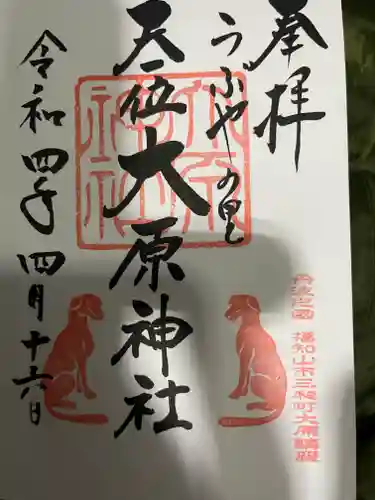 奉拝
うぶやの里
天一位大原神社
令和四年四月十六日
丹波之国 福知山市三和町大原鎮座
大原神社